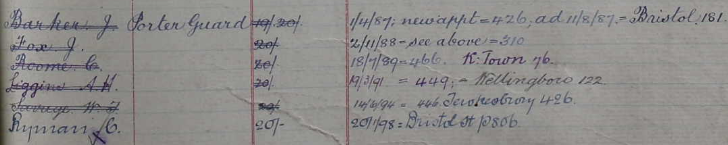 Barker J. Porter Guard 19/20/- 1/4/87; new appt = 426, ad 11/8/87 = Bristol, 181.
Fox J. 20/- 2/11/88 - see above = 310
Roome C. 20/- 18/7/89 = 466. K. Town 76.
Liggins A.H. 20/- 19/3/91 = 449; - Wellingboro 122
Savage W. 20/- 14/4/94 = 446 Tewkesbury 426.
Ryman, C. 20/- 20/1/98 = Bristol St